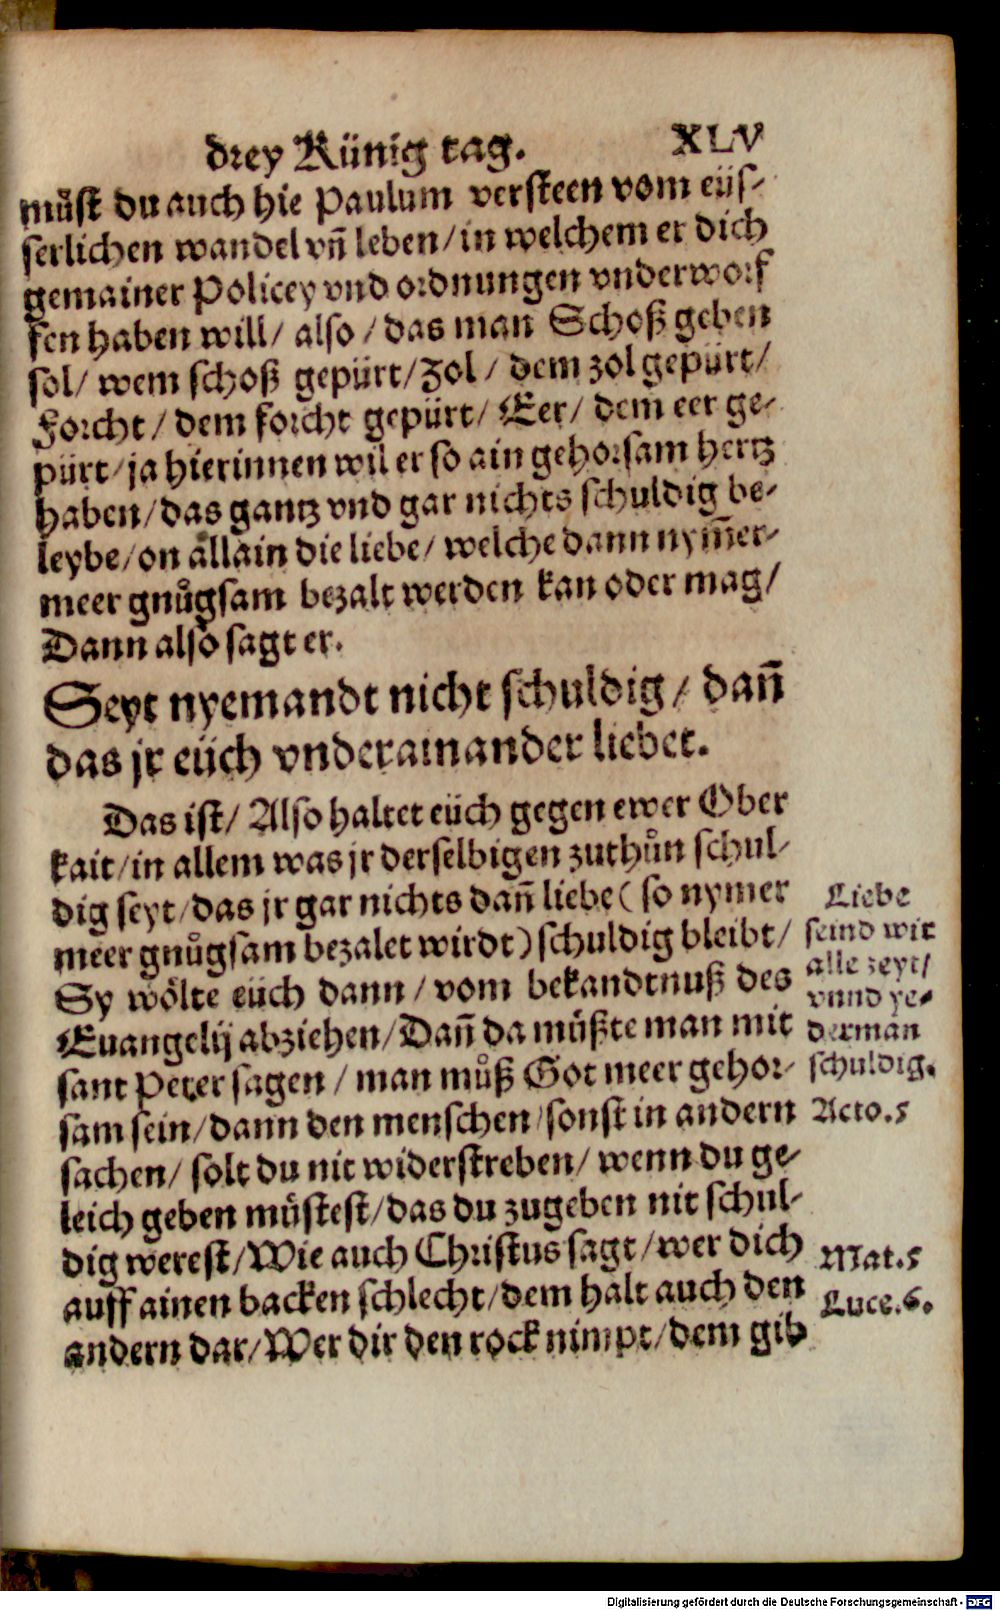 drey Künig tag. XLV
můst du auch hie Paulum versteen vom eüs-
serlichen wandel vn̄ leben/in welchem er dich
gemainer Policey vnd ordnungen vnderworf
fen haben will/ also/das man Schoß geben
sol/ wem schoß gepürt/Zol/ dem zol gepürt/
Forcht/ dem forcht gepürt/ Eer/ dem eer ge-
pürt/ja hierinnen wil er so ain gehorsam hertz
haben/das gantz vnd gar nichts schuldig be-
leybe/on allain die liebe/ welche dann nym̄er-
meer gnůgsam bezalt werden kan oder mag/
Dann also sagt er.
Seyt nyemandt nicht schuldig/ dan̄
das jr eüch vnderainander liebet.
Das ist/ Also haltet eüch gegen ewer Ober
kait/in allem was jr derselbigen zuthůn schul-
dig seyt/das jr gar nichts dan̄ liebe (so nymer
meer gnůgsam bezalet wirdt) schuldig bleibt/
Sy wölte eüch dann/ vom bekandtnuß des
Euangelij abziehen/Dan̄ da müßte man mit
sant Peter sagen/ man můß Got meer gehor-
sam sein/dann den menschen/sonst in andern
sachen/ solt du nit widerstreben/ wenn du ge-
leich geben müstest/das du zugeben nit schul-
dig werest/Wie auch Christus sagt/wer dich
auff ainen backen schlecht/dem halt auch den
andern dar/Wer dir den rock nimpt/dem gib
Liebe
seind wir
alle zeyt/
vnnd ye-
derman
schuldig.
Acto.5
Mat.5
Luce.6.
Digitalisierung gefördert durch die Deutsche Forschungsgemeinschaft - DFG